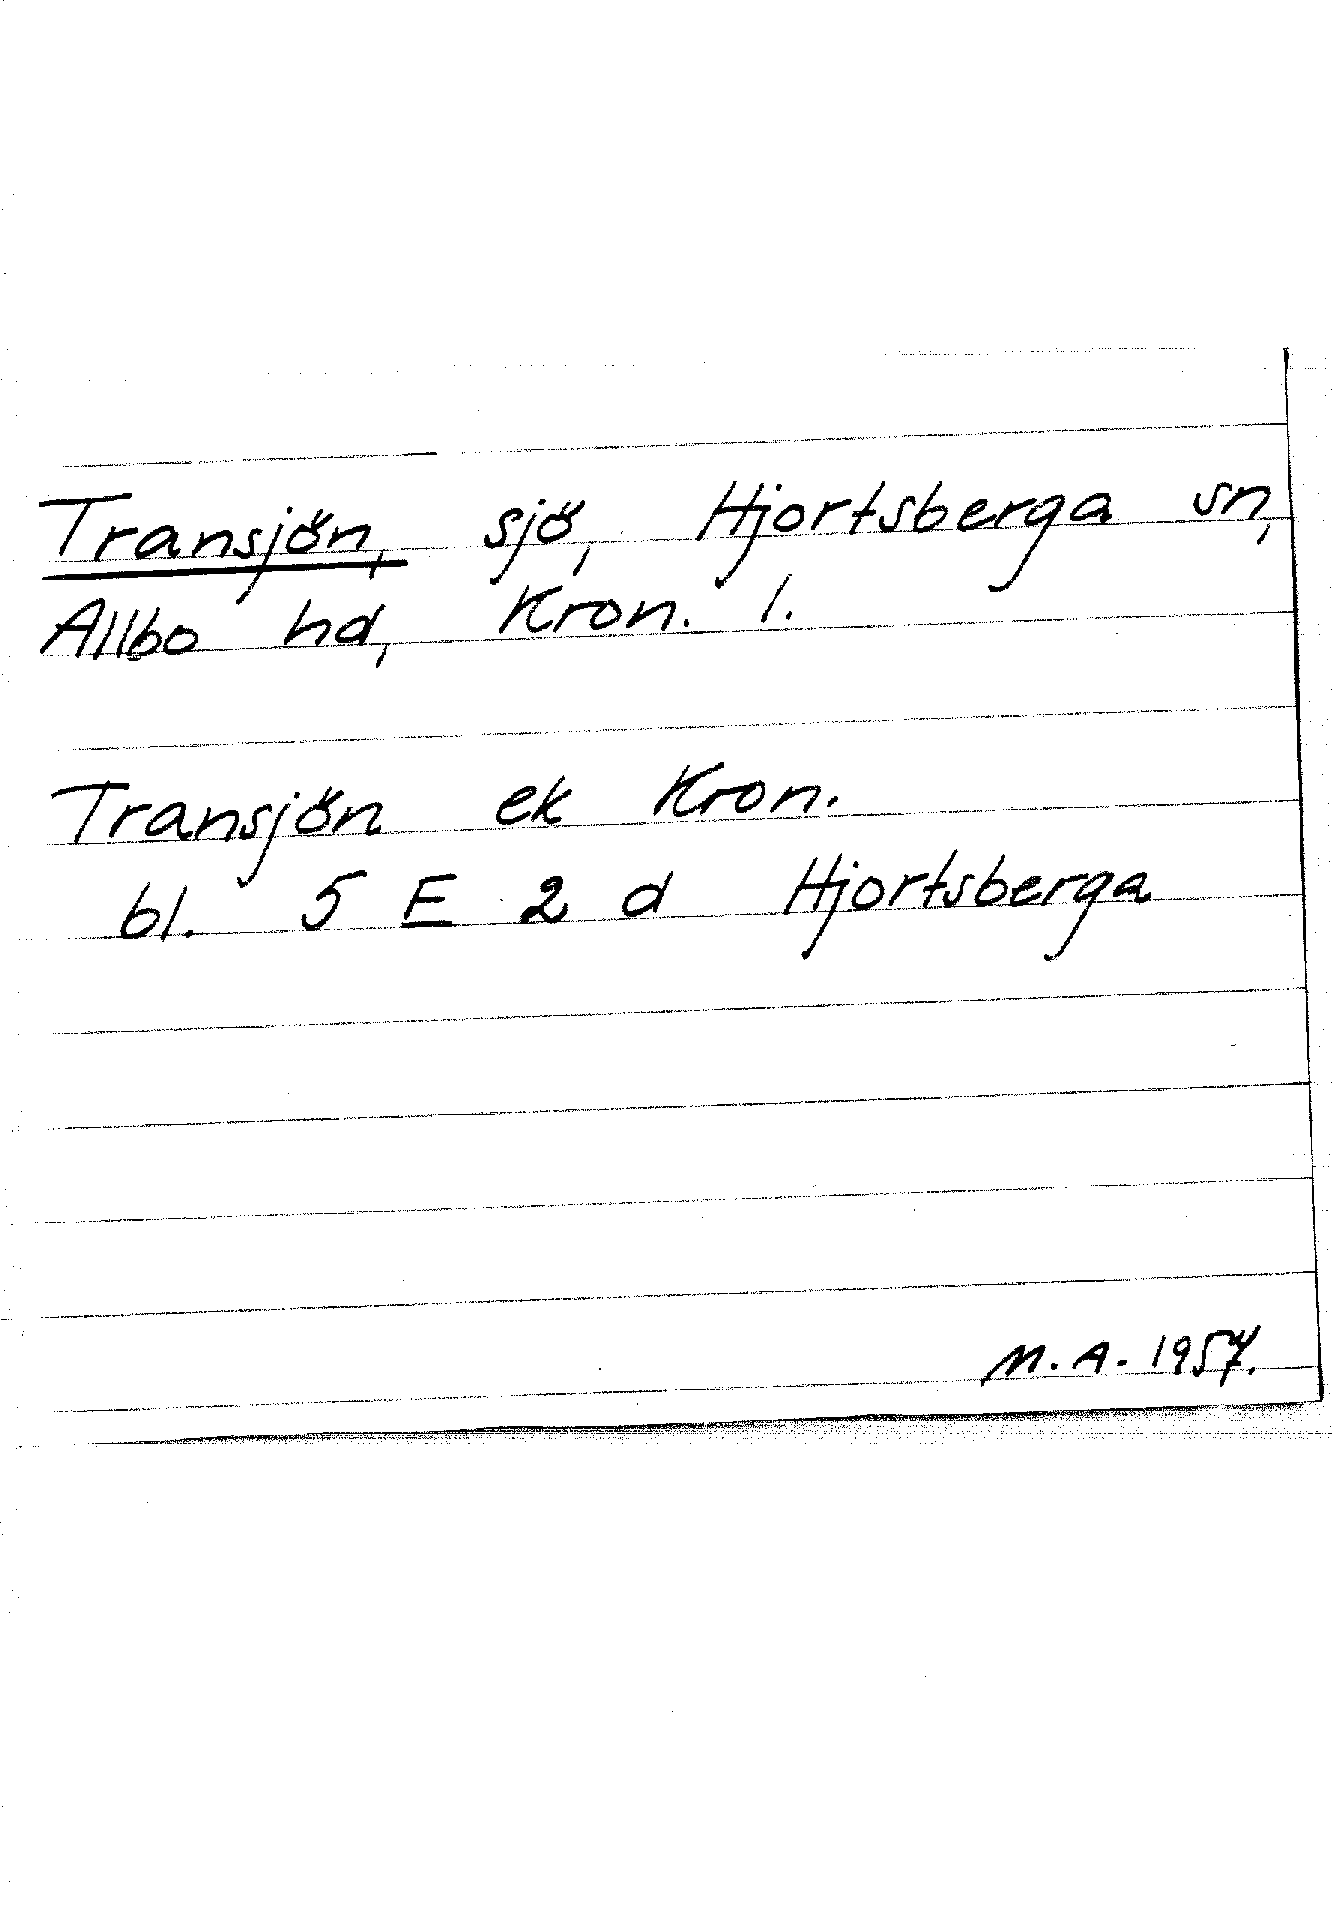 Transjön, sjö, Hjortsberga sn,
Allbo hd, Kron. l.
Transjön ek Kron.
bl. 5 E 2 d Hjortsberga
M. A. 1957.